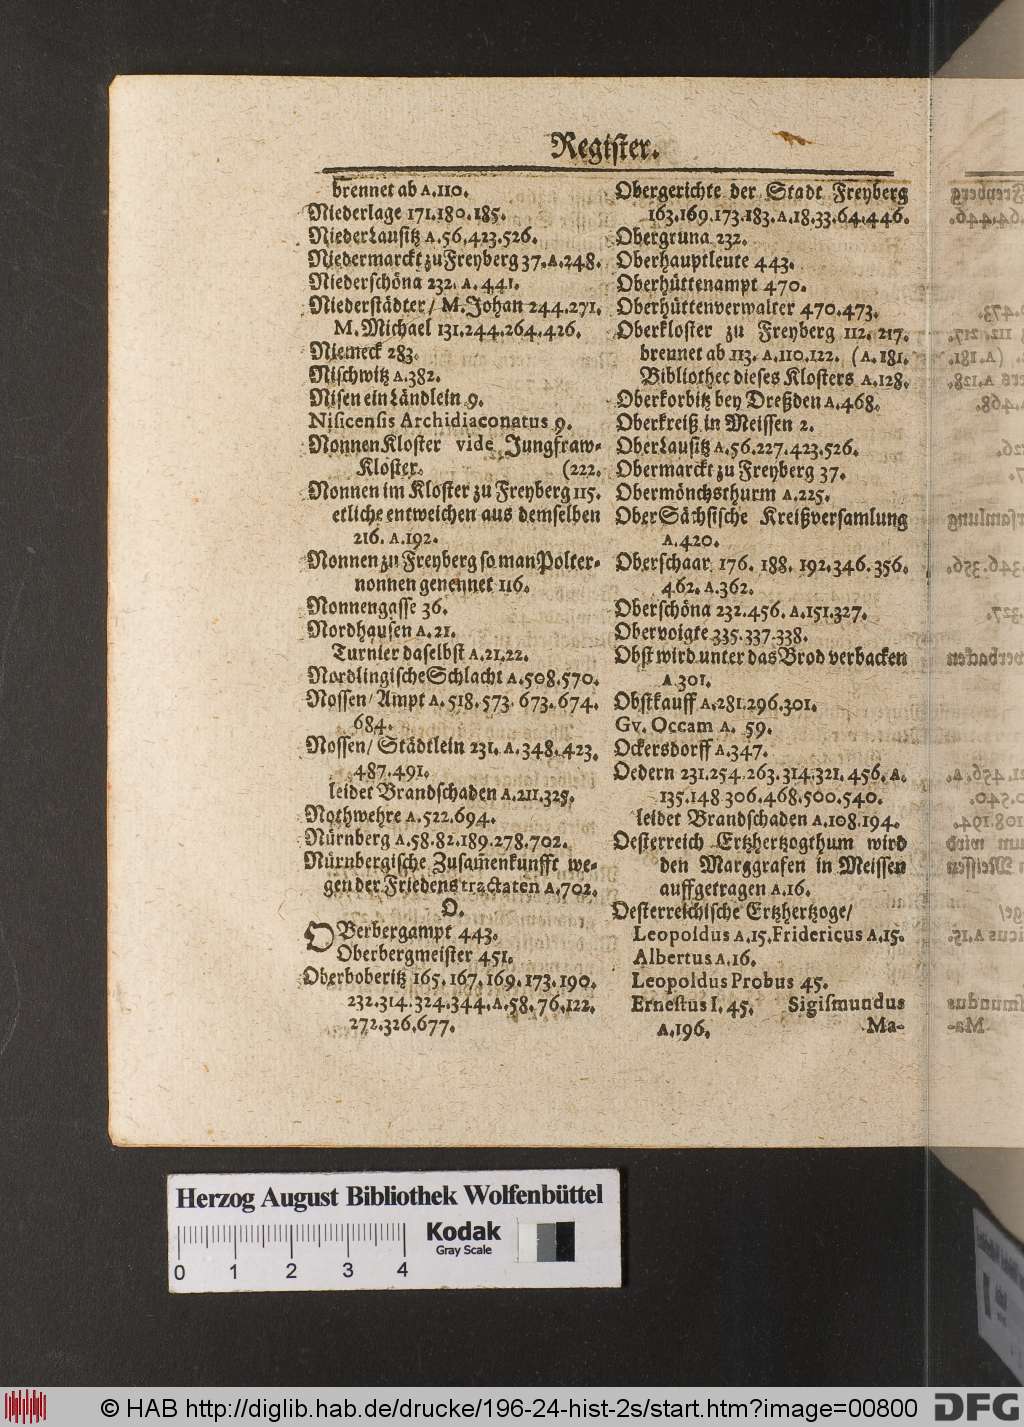 Register.
brennet ab A.110.
Niederlage 171.180.185.
NiederLausitz A.56.423.526.
Niedermarckt zu Freyberg 37.A.248.
Niederschöna 232. A.441.
Niederstädter/ M.Johan 244.271.
M.Michael 131.244.264.426.
Niemeck 283.
Nischwitz A.382.
Nisen ein Ländlein 9.
Nisicensis Archidiaconatus 9.
NonnenKloster vide Jungfraw-
Kloster. (222.
Nonnen im Kloster zu Freyberg 115.
etliche entweichen aus demselben
216. A.192.
Nonnen zu Freyberg so man Polter-
nonnen genennet 116.
Nonnengasse 36.
Nordhausen A.21.
Turnier daselbst A.21.22.
Nordlingische Schlacht A.508.570.
Nossen/ Ampt A.518.573.673.674.
684.
Nossen/ Städtlein 231. A.348.423.
487.491.
leidet Brandschaden A.211.325.
Nothwehre A.522.694.
Nürnberg A.58.82.189.278.702.
Nürnbergische Zusamenkunfft we-
gen der Friedenstractaten A.702.
O.
OBerbergampt 443.
Oberbergmeister 451.
Oberboberitz 165.167.169.173.190.
232.314.324.344.A.58.76.122.
272.326.677.
Obergerichte der Stadt Freyberg
163.169.173.183.A.18.33.64.446.
Obergruna 232.
Oberhauptleute 443.
Oberhüttenampt 470.
Oberhüttenverwalter 470.473.
Oberkloster zu Freyberg 112.217.
brennet ab 113. A.110.122. (A.181.
Bibliothec dieses Klosters A.128.
Oberkorbitz bey Dreßden A.468.
Oberkreiß in Meissen 2.
OberLausitz A.56.227.423.526.
Obermarckt zu Freyberg 37.
Obermönchsthurm A.225.
OberSächsische Kreißversamlung
A.420.
Oberschaar 176. 188. 192.346.356.
462. A.362.
Oberschöna 232.456. A.151.327.
Obervoigte 335.337.338.
Obst wird unter das Brod verbacken
A.301.
Obstkauff A.281.296.301.
Gv. Occam A. 59.
Ockersdorff A.347.
Oedern 231.254.263.314.321.456. A.
135.148.306.468.500.540.
leidet Brandschaden A.108.194.
Oesterreich Ertzhertzogthum wird
den Marggrafen in Meissen
auffgetragen A.16.
Oesterreichische Ertzhertzoge/
Leopoldus A.15. Fridericus A.15.
Albertus A.16.
Leopoldus Probus 45.
Ernestus I. 45. Sigismundus
A.196. Ma-
Herzog August Bibliothek Wolfenbüttel
Kodak
Gray Scale
0 1 2 3 4
© HAB http://diglib.hab.de/drucke/196-24-hist-2s/start.htm?image=00800
DFG